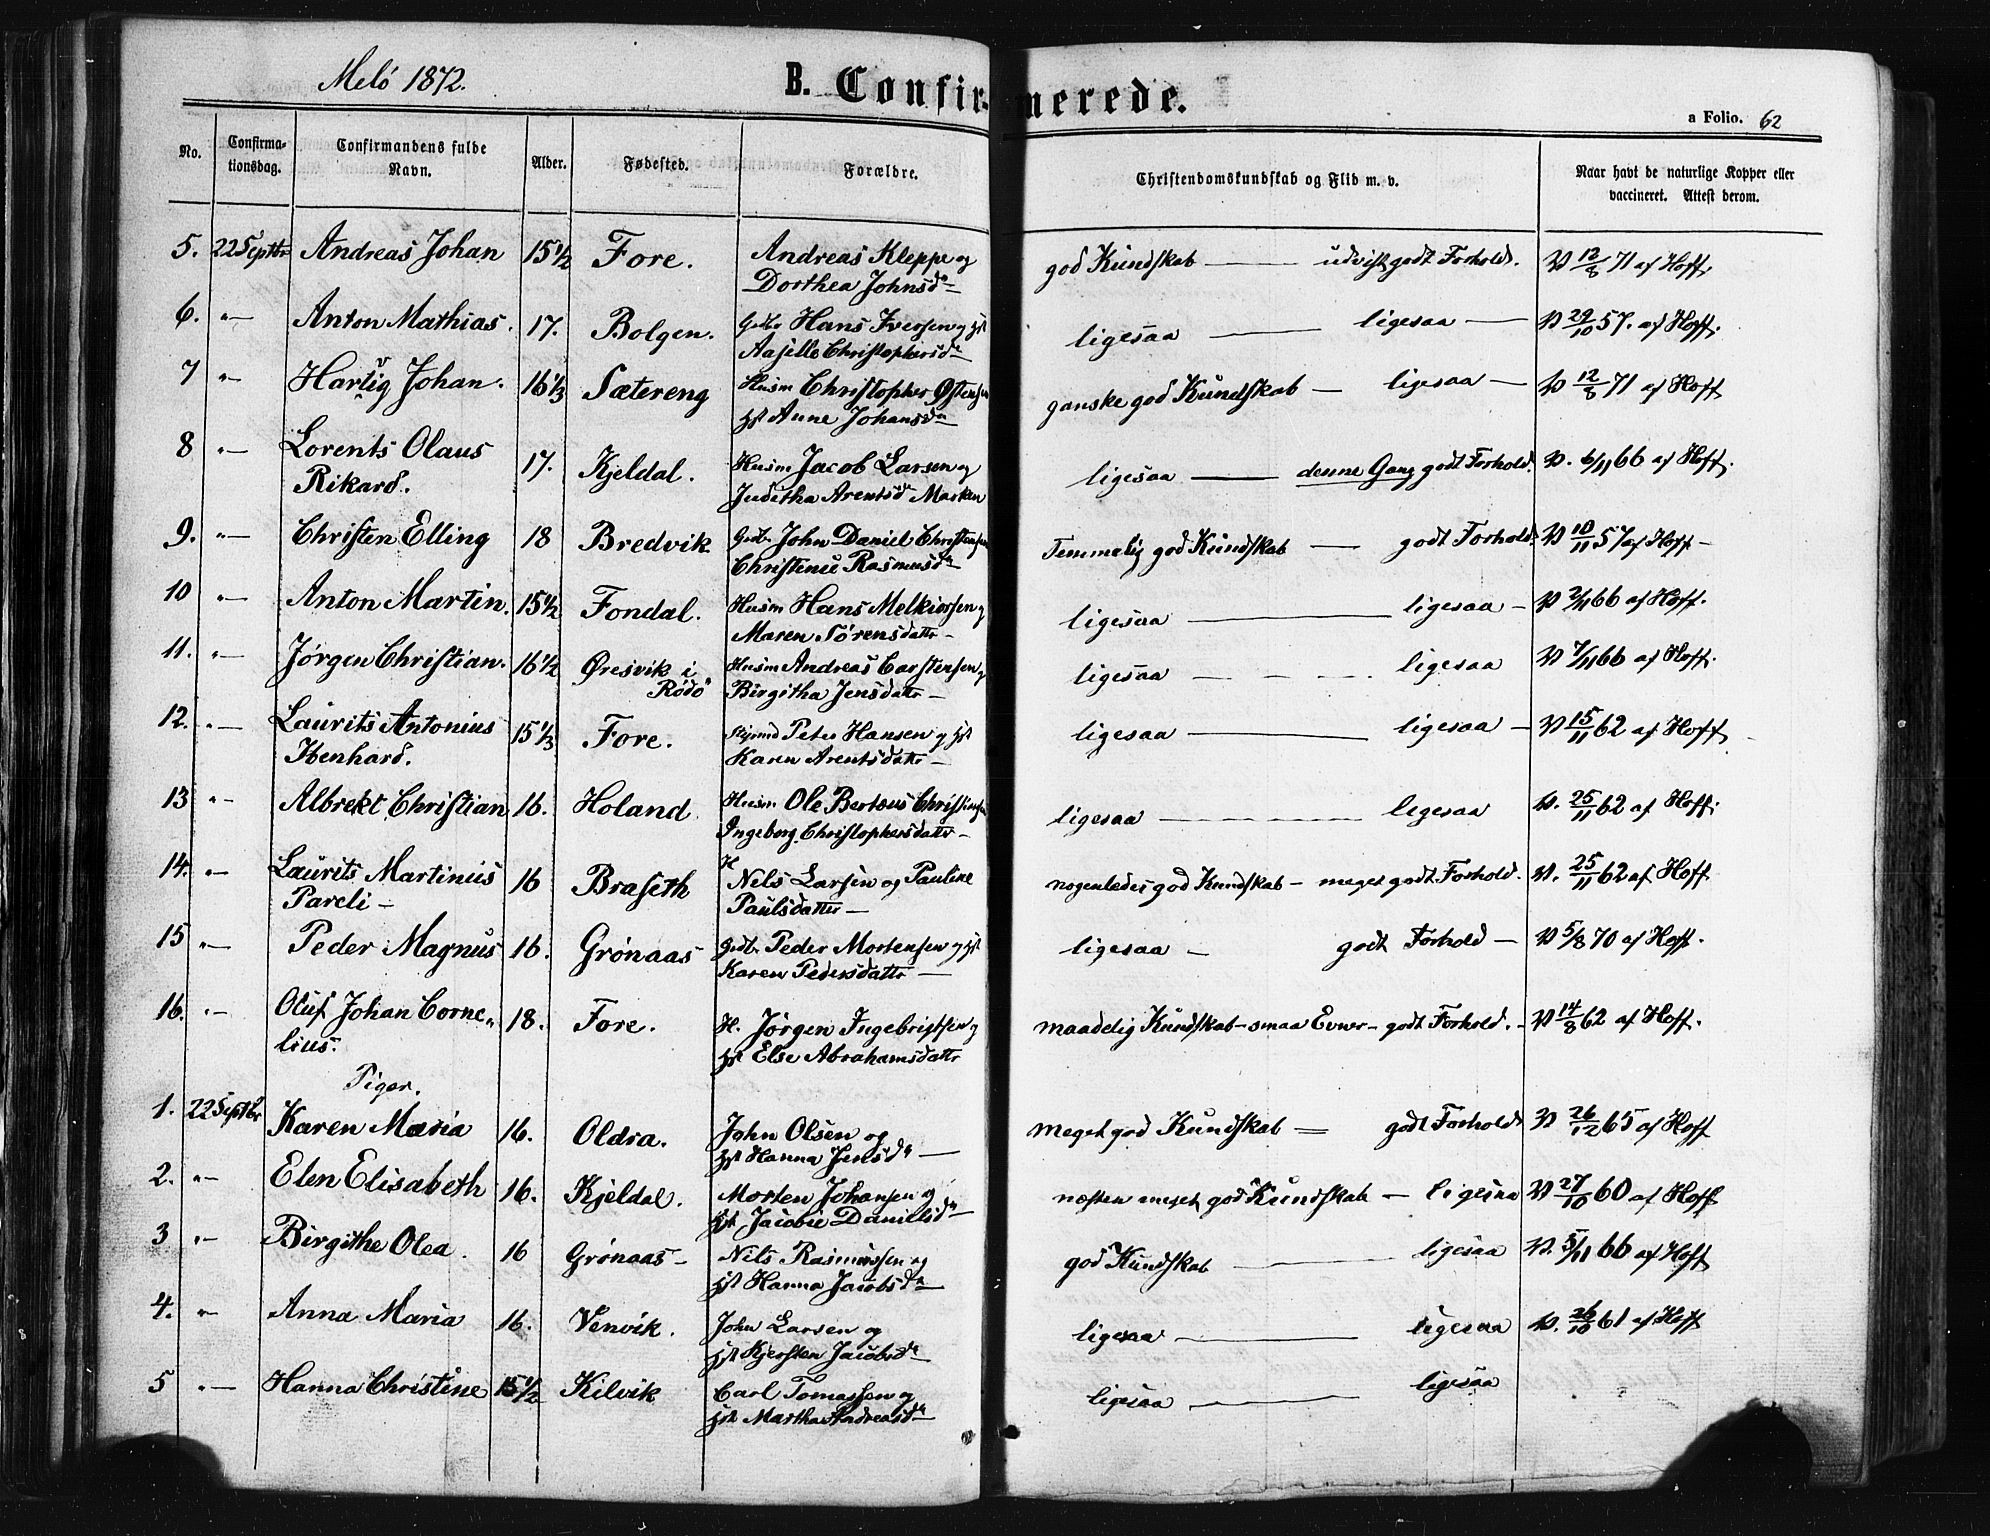 Melö 1872.
B. Confirmerede.
a Folio. 62
No. Confirmationsdag. Confirmandens fulde Navn. Alder. Fødested. Forældre. Christendomskundskab og Flid m. v. Naar havt de naturlige Kopper eller vaccineret. Attest derom.
5. 22 Septbr Andreas Johan 15 1/2 Fore. Andreas Kleppe og god Kundskab — udvist godt Forhold. V 12/8 71 af Hoff.
Dorthea Johnsd
6. "— Anton Mathias. 17. Bolgen. Gdbr Hans Iversen og hst ligesaa — ligesaa — V 29/10 57. af Hoff.
Aasille Christophersd
7 "— Hartvig Johan. 16 1/3 Sætereng Husm Christopher Østensen ganske god Kundskab — ligesaa — V 12/8 71 af Hoff
hst Anne Johansd
8 "— Lorents Olaus 17. Kjeldal. Husm Jacob Larsen og ligesaa — denne Gang godt Forhold. V. 6/11 66 af Hoff.
Rikard. Juditha Arentsd Marken
9. "— Christen Elling 18 Bredvik Gdbr John Daniel Christensen Temmelig god Kundskab — godt Forhold V 10/11 57 af Hoff —
Christense Rasmusd
10 "— Anton Martin. 15 1/2 Fondal. Husm Hans Melkiorsen og ligesaa — ligesaa — V 2/11 66 af Hoff.
Maren Sørensdattr —
11. "— Jørgen Christian. 16 1/2 Øresvik i Husm Andreas Carstensen og ligesaa — ligesaa V 7/11 66 af Hoff.
Rödö Birgitha Jensdattr —
12. "— Laurits Antonius 15 1/3 Fore. Peter Hansen og hst ligesaa — ligesaa — V 15/11 62 af Hoff
Ibenhard. Karen Arentsdattr —
13 "— Albrekt Christian 16. Holand Husm Ole Berteus Christensen ligesaa — ligesaa V. 25/11 62 af Hoff.
Ingeborg Christophersdattr —
14. "— Laurits Martinus 16 Braseth H Nils Larsen og Pauline nogenledes god Kundskab — meget godt Forhold. V. 25/11 62 af Hoff
Pareli — Paulsdatter —
15 "— Peder Magnus 16. Grönaas Gdbr Peder Mortensen og hst ligesaa — godt Forhold — V 5/8 70 af Hoff.
Karen Pedersdattr —
16. "— Oluf Johan Corne- 18. Fore. H. Jørgen Ingebrigtsen og maadelig Kundskab — smaa Evner — godt Forhold. — V 14/8 62 af Hoff.
lius. hst Else Abrahamsdattr
Piger.
1. 22 Septbr Karen Maria 16. Oldra. John Olsen og meget god Kundskab — godt Forhold V 26/12 65 af Hoff
hst Hanna Jensd —
2. "— Elen Elisabeth 16. Kjeldal. Morten Johansen og næsten meget god Kundskab — ligesaa V 27/10 60 af Hoff
hst Jacobie Danielsd
3 "— Birgithe Olea. 16 Grönaas — Nils Rasmussen og god Kundskab — ligesaa V. 5/11 66 af Hoff
hst Hanna Jacobsd
4. "— Anna Maria 16. Venvik. John Larsen og ligesaa — ligesaa V. 26/10 61 af Hoff
hst Kjersten Jacobsd
5 "— Hanna Christine 15 1/2 Kilvik Carl Tomassen og ligesaa — ligesaa
hst Martha Andreasd